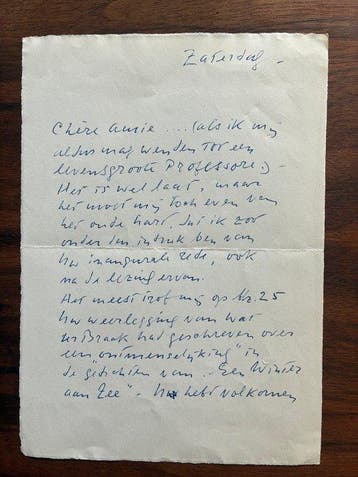 Zaterdag -
Chère Annie .... (als ik mij
aldus mag wenden tot een
levensgroote Professore.) -
Het is wel laat, maar
het moet mij toch even van
het oude hart, dat ik zoo
onder den indruk ben van
Uw inaugurale rede, ook
na de lezing ervan.
Het meest trof mij op blz. 25
Uw weerlegging van wat
ter Braak had geschreven over
een "ontmenselijking" in
de gedichten van "Een Winter
aan Zee" - Uw hebt volkomen